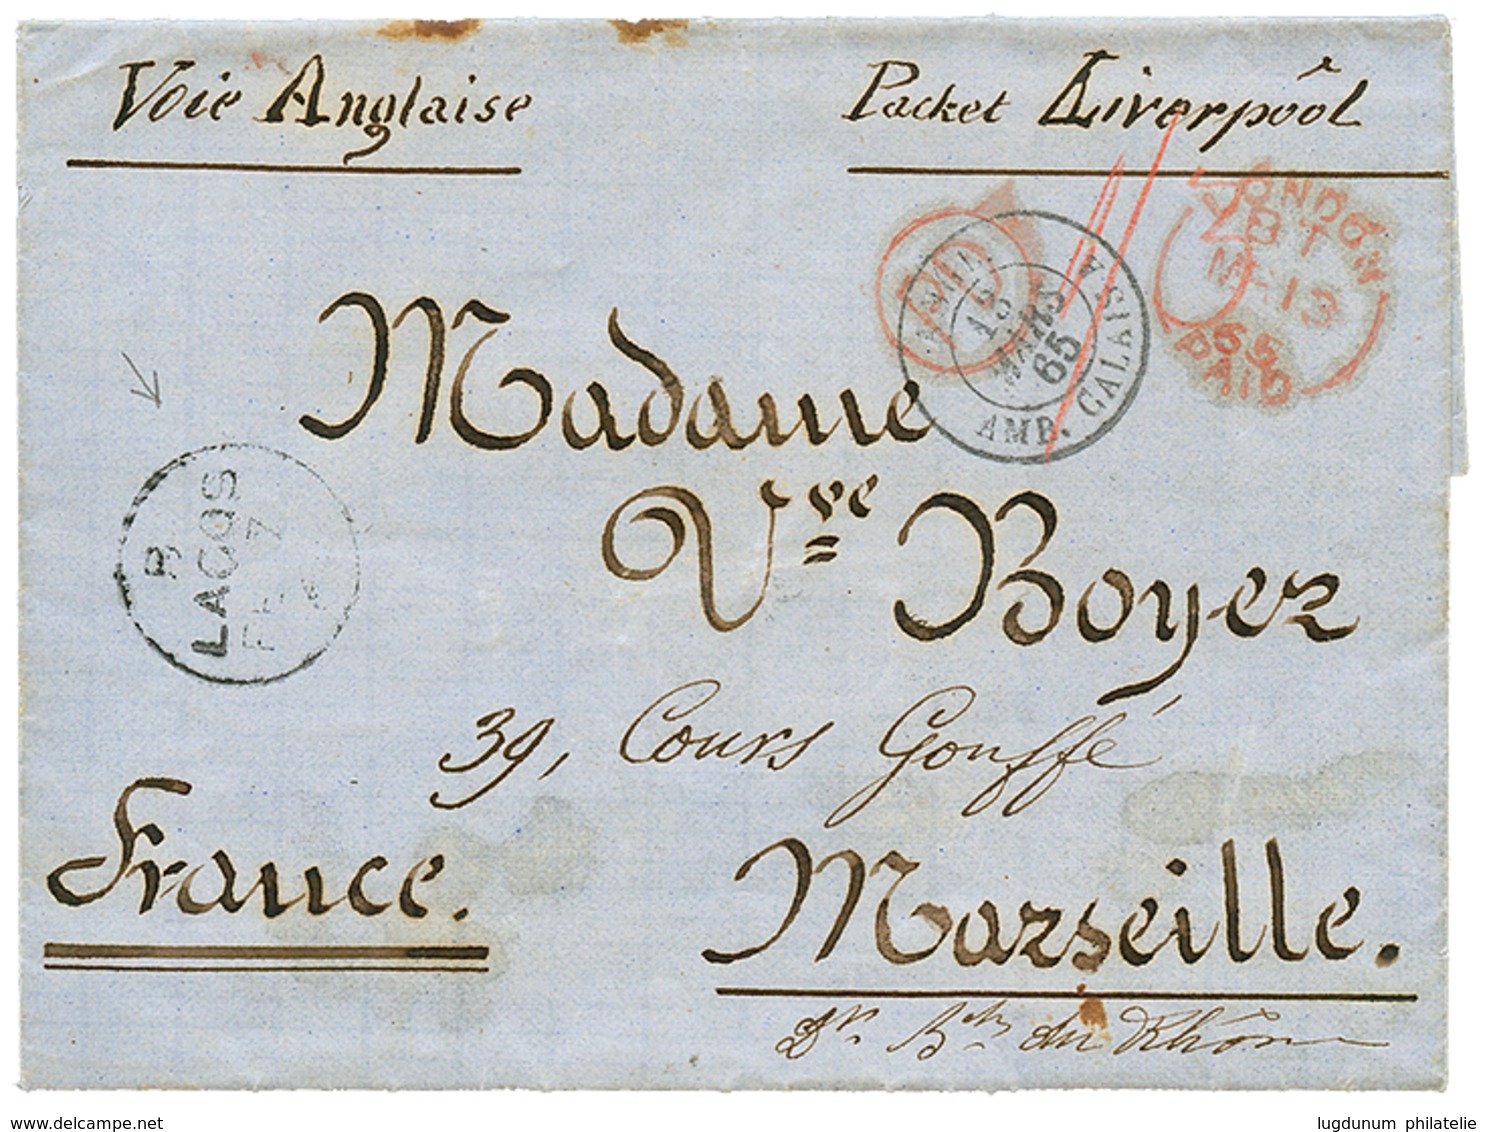 Voie Anglaise
Packet Liverpôol
PD
ANGL. AMB. CALAIS A
13
MARS
65
LONDON
BT
MR 13
65
PAID
B
LAGOS
FE 7
Madame
Vve Boyer
39, Cours Gouffé
France.
Marseille.
Dt Bches du Rhône
www.delcampe.net
lugdunum philatelie